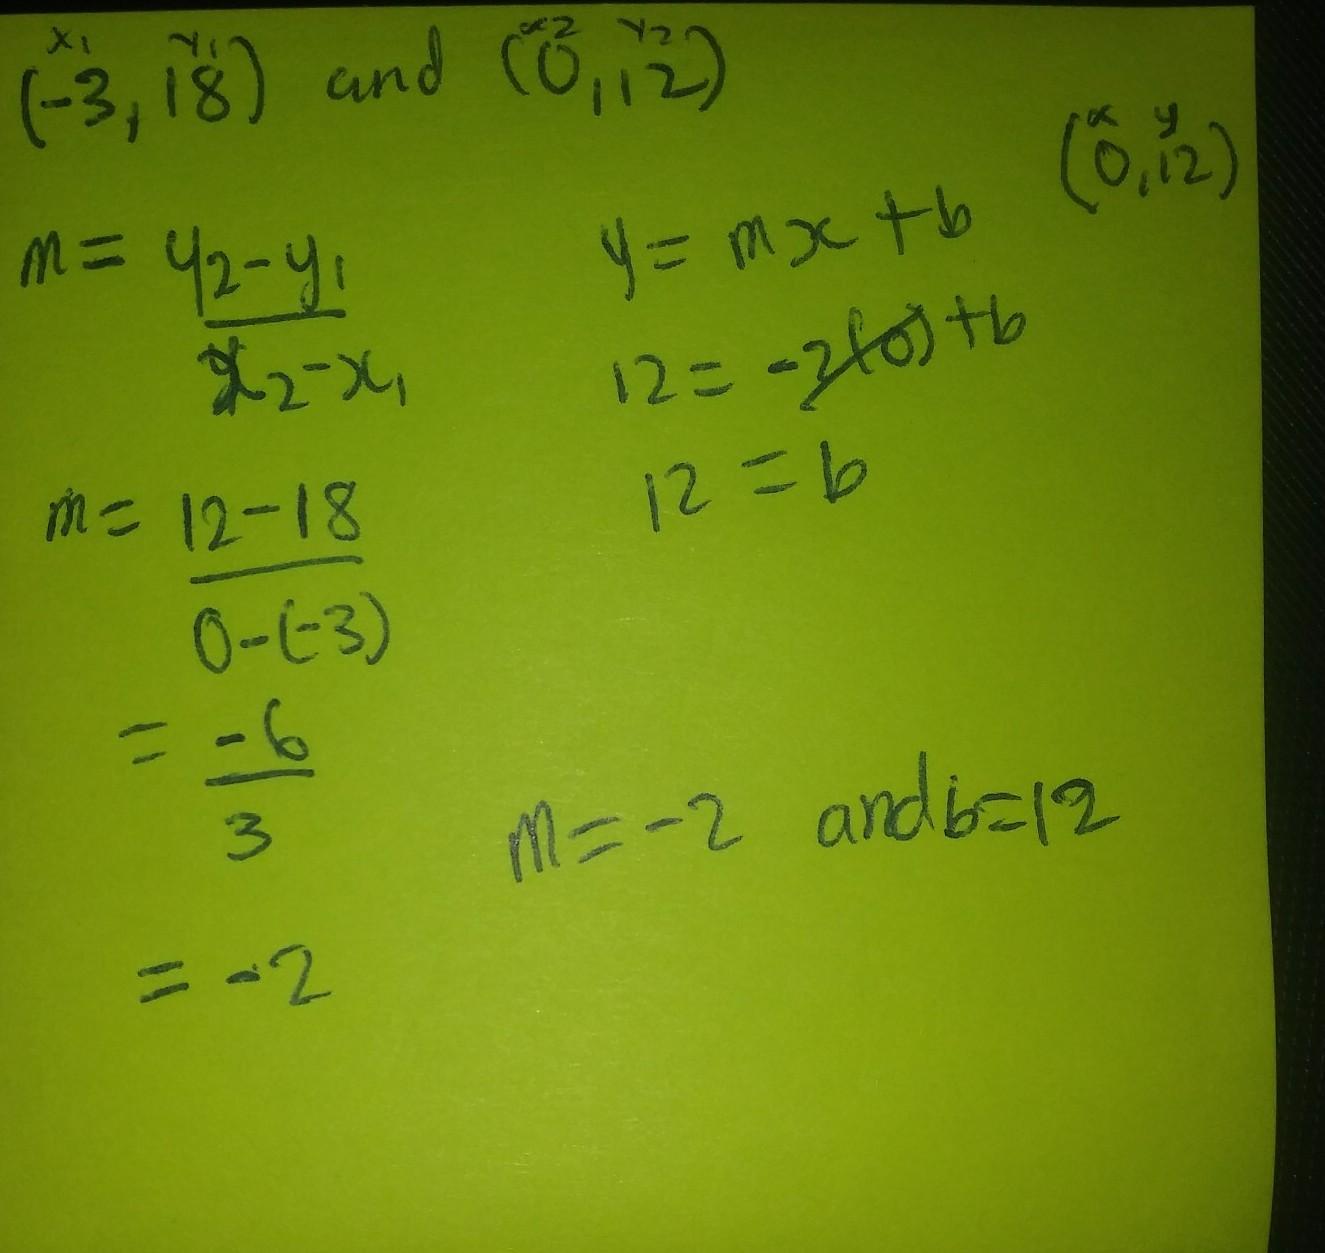 x₁ y₁ x₂ y₂
(-3, 18) and (0, 12)
x y
(0, 12)
m = y₂-y₁
x₂-x₁
m = 12-18
0-(-3)
= -6
3
= -2
y = mx + b
12 = -2(0) + b
12 = b
m = -2 and b = 12